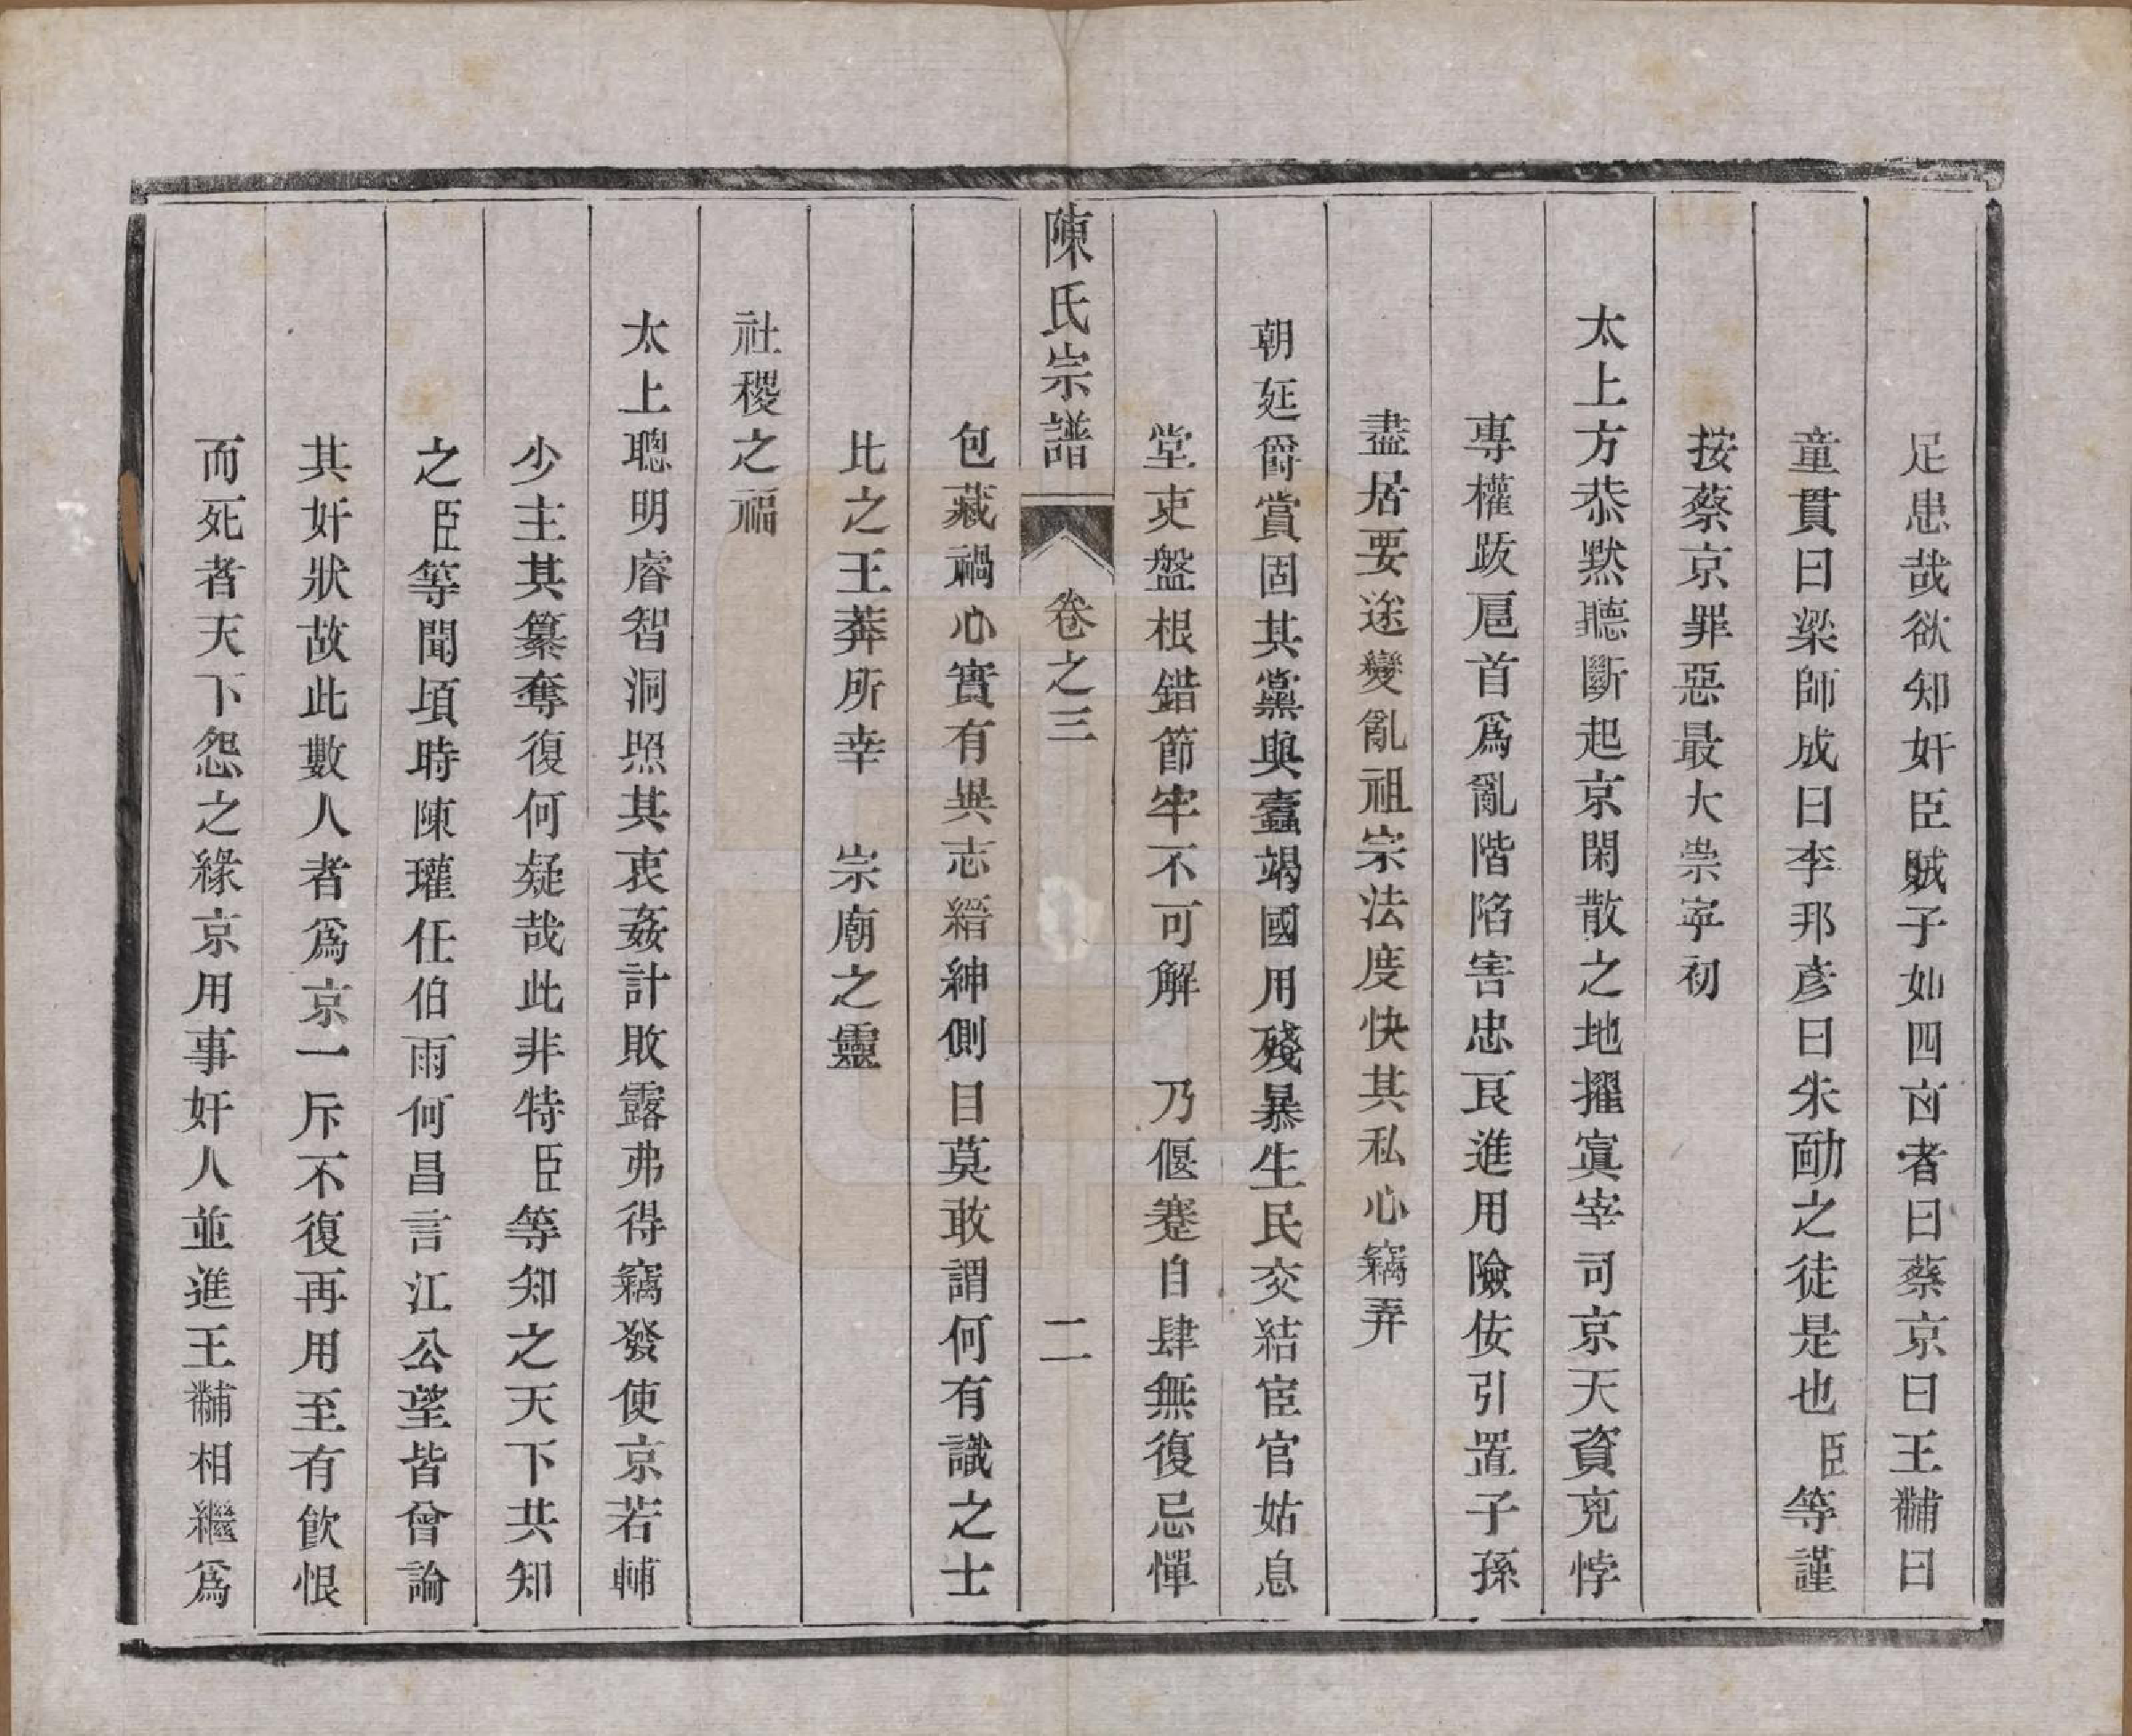 足患哉欲知奸臣賊子如四凶者曰蔡京曰王黼曰
童貫曰梁師成曰李邦彥曰朱勔之徒是也臣等謹
按蔡京罪惡最大崇寧初
太上方恭默聽斷起京閑散之地擢寘宰司京天資兇悖
專權跋扈首爲亂階陷害忠良進用險佞引置子孫
盡居要途變亂祖宗法度快其私心竊弄
朝廷爵賞固其黨與蠹竭國用殘暴生民交結宦官姑息
堂吏盤根錯節牢不可解 乃偃蹇自肆無復忌憚
陳氏宗譜 卷之三 二
包藏禍心實有異志縉紳側目莫敢謂何有識之士
比之王莽所幸 宗廟之靈
社稷之福
太上聰明睿智洞照其衷姦計敗露弗得竊發使京若輔
少主其纂奪復何疑哉此非特臣等知之天下共知
之臣等聞頃時陳瓘任伯雨何昌言江公望皆曾論
其奸狀故此數人者爲京一斥不復再用至有飲恨
而死者天下怨之緣京用事奸人並進王黼相繼爲